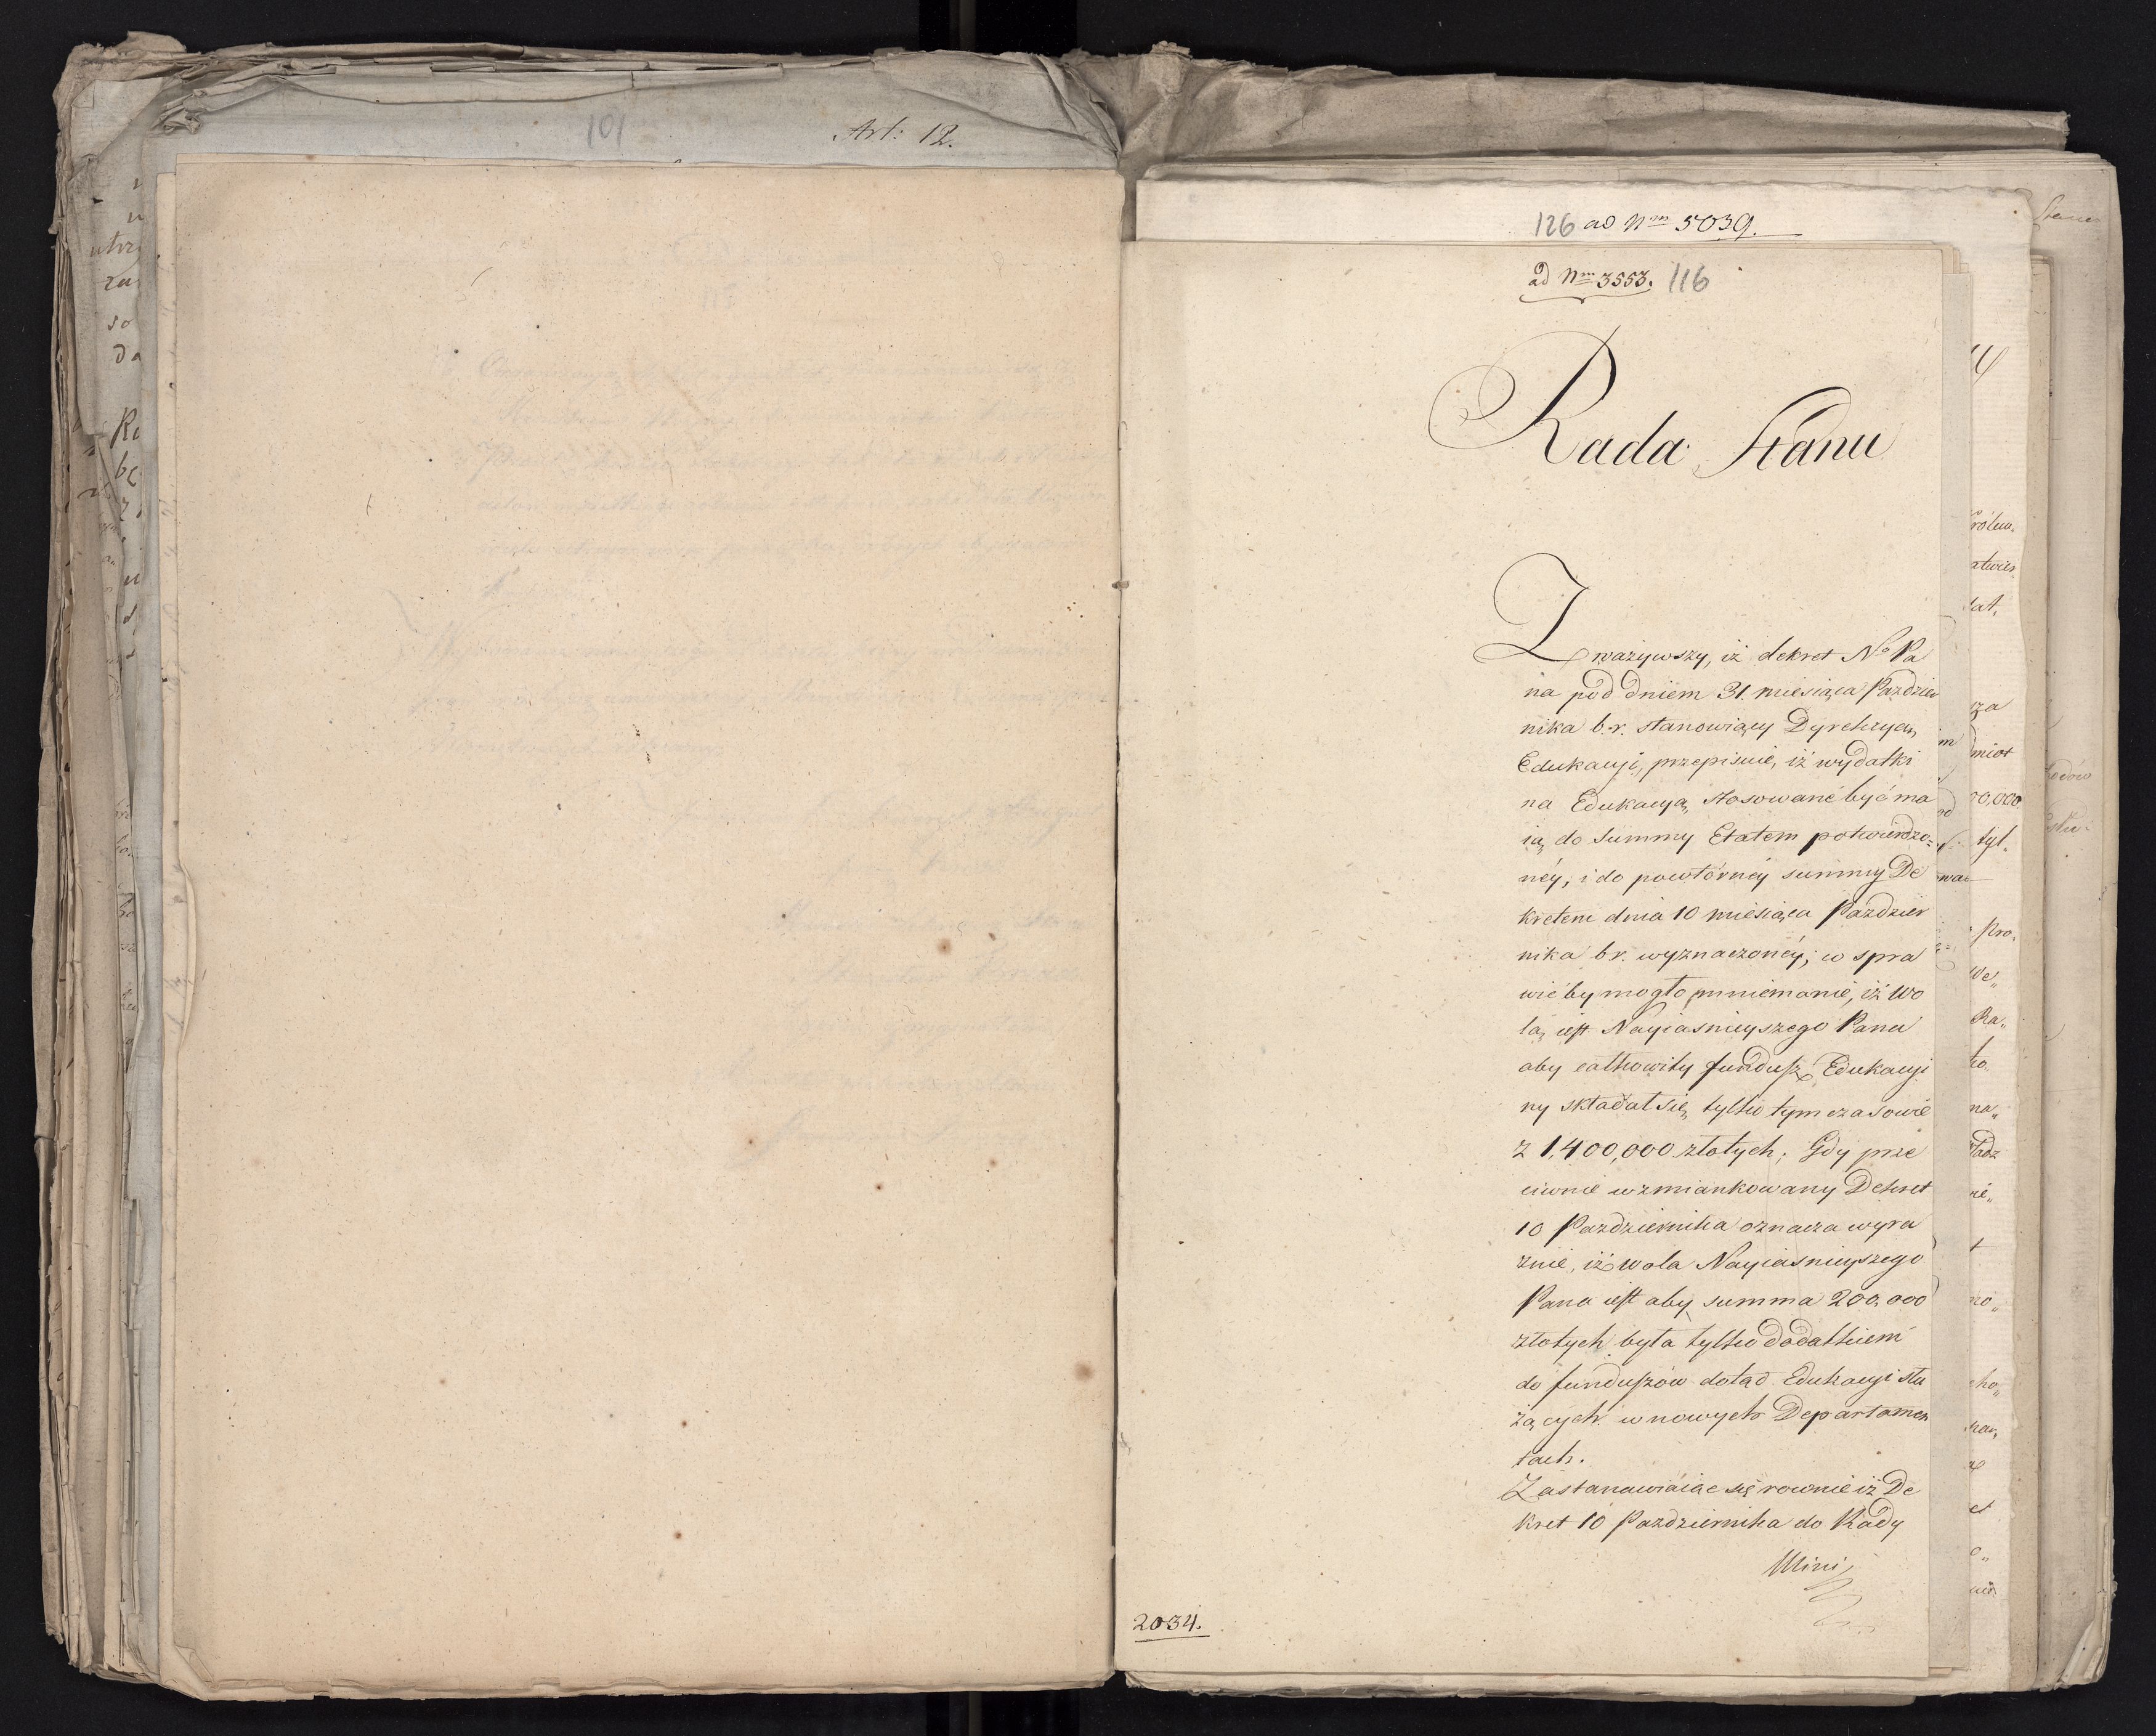 101
Art: 12.
126 ad Nm 5039.
ad Nm 3553. 116
Rada Stanu
Zwazywszy, iż dekret No Pa
na pod dniem 31. miesiąca Pazdzier
nika b. r. stanowiący Dyrekcyą,
Edukacyi, przepisuie, iż wydatki
na Edukacyą stosowane być ma
ią do Summy Etatem potwierdzo=
néy, i do powtórnéy summy De
kretem dnia 10 miesiąca Pazdzier
nika br. wyznaczonéy; w spra
wie by mogło mniemanie, iż Wo
lą iest Nayiasnieyszego Pana
aby całkowity fundusz Edukacyi
ny składał się tylko tymczasowie
z 1,400,000 złotych; Gdy prze
ciwnie wzmiankowany Dekret
10 Pazdziernika oznacza wyra
znie, iż wola Nayiasnieyszego
Pana iest aby summa 200,000
złotych była tylko dodatkiem
do funduszów dotąd Edukacyi słu
żących w nowych Departamen
tach.
Zastanawiaiąc się rownie iż De
kret 10 Pazdziernika do Rady
Mini
2034.